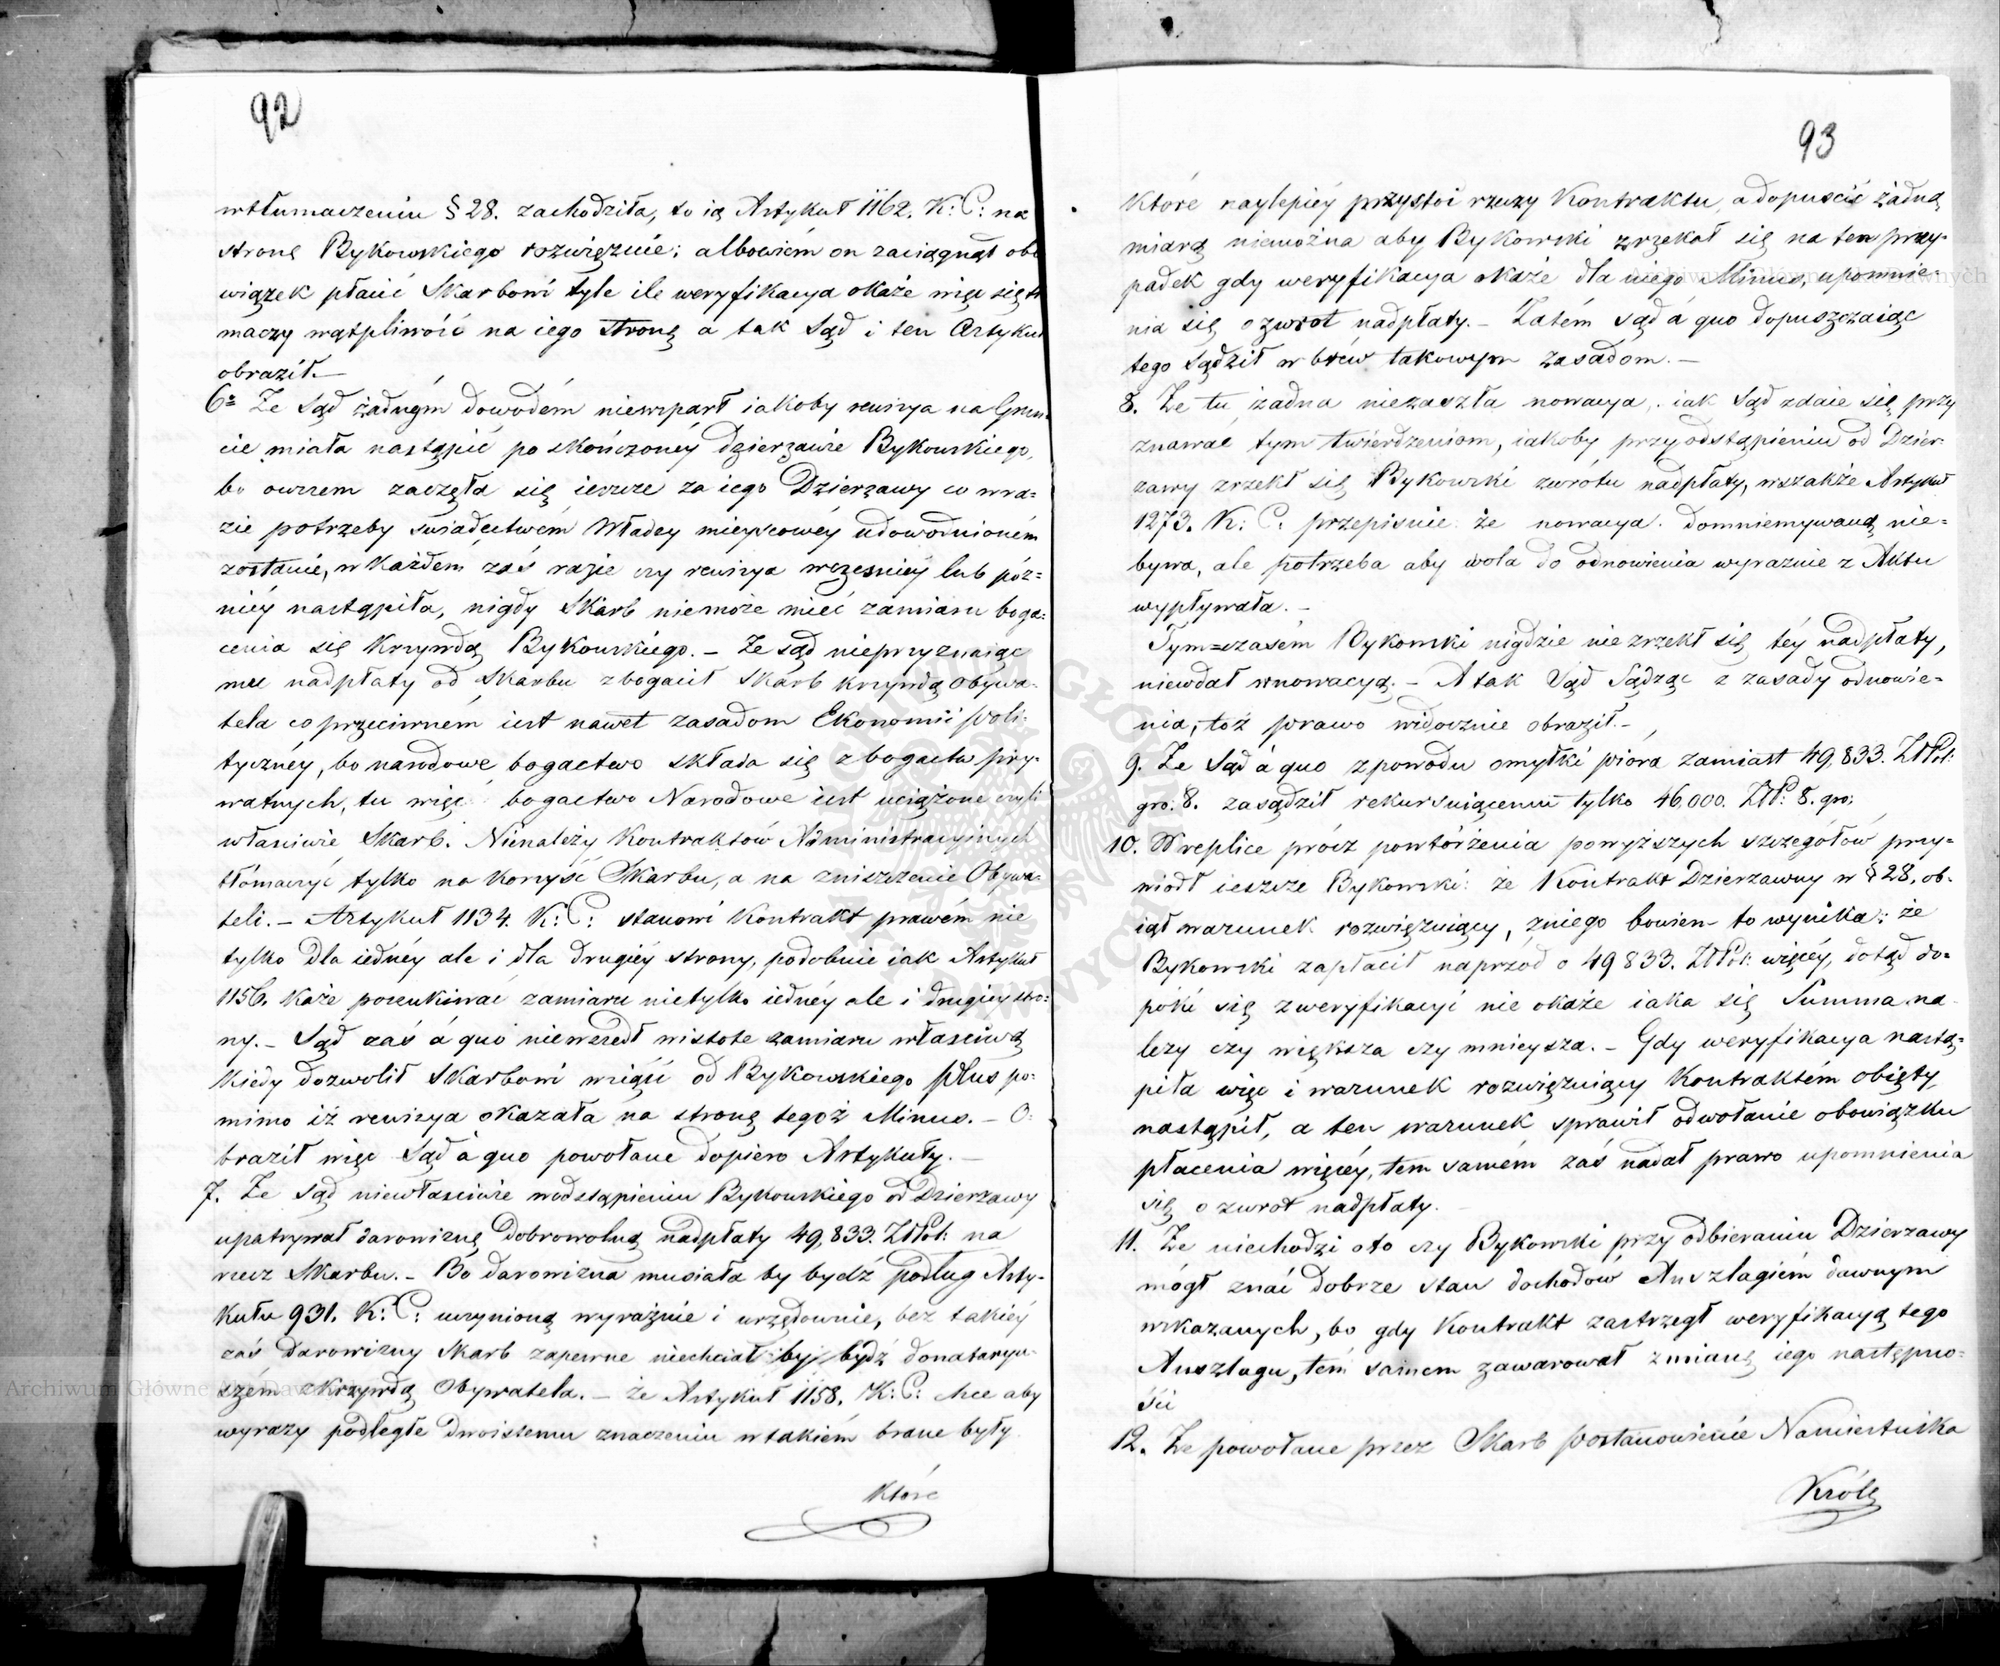 92
wtłumaczeniu § 28. zachodziła, to ią Artykuł 1162. K: C: na
stronę Bykowskiego rozwięzuie; albowiém on zaciągnął obo
wiązek płacić Skarbowi tyle ile weryfikacya okaże więc się tł
maczy wątpliwość na iego stronę á tak Sąd i ten Artykuł
obraził.—
6° Że Sąd żadnym dowodém niewsparł iakoby rewizya na Grun
cie miała nastąpić po skończonéy Dzierżawie Bykowskiego,
bo owszem zaczęła się ieszcze za iego Dzierżawy co wra=
zie potrzeby świadectwém Władzy mieyscowéy udowodnioném
zostanie, w każdem zaś razie czy rewizya wcześniéy lub póź=
niéy nastąpiła, nigdy Skarb niemoże mieć zamiaru boga=
cenia się krzywdą Bykowskiego. – Że sąd nieprzyznaiąc
mu nadpłaty od Skarbu zbogacił Skarb krzywdą Obywa-
tela co przeciwném iest nawet zasadom Ekonomii poli-
tycznéy, bo narodowe bogactwo składa się z bogactw pry-
watnych, tu więc bogactwo Narodowe iest uciążone czyli
właściwie Skarb. Nienależy Kontraktów Administracyinych
tłómaczyć tylko na korzyść Skarbu, a na zniszczenie Obywa-
teli. – Artykuł 1134. K: C: stanowi Kontrakt prawém nie
tylko dla iednéy ale i dla drugiéy strony, podobnie iak Artykuł
1156. każe poszukiwać zamiaru nietylko iednéy ale i drugiéy stro=
ny. – Sąd zaś á quo niewszedł wistotę zamiaru właściwą
kiedy dozwolił Skarbowi wziąść od Bykowskiego plus po=
mimo iż rewizya okazała na stronę tegoż Minus. – O=
braził więc Sąd á quo powołane dopiero Artykuły. —
7. Że Sąd niewłaściwie wodstąpieniu Bykowskiego od Dzierżawy
upatrywał darowiznę dobrowolną nadpłaty 49,833. ZłPol: na
rzecz Skarbu. – Bo darowizna musiała by bydź podług Arty-
kułu 931. K: C: uczynioną wyraźnie i urzędownie, bez takiéy
zaś darowizny Skarb zapewne niechciał by bydź donataryu-
szém zkrzywdą Obywatela. – że Artykuł 1158. K: C: chce aby
wyrazy podległe dwoistemu znaczeniu w takiém brane były
które
93
które naylepiéy przystoi rzeczy Kontraktu, a dopuścić żadną
miarą niemożna aby Bykowski zrzekał się na ten przy-
padek gdy weryfikacya okaże dla niego Minus, upomnie-
nia się o zwrot nadpłaty. – Zatém sąd á quo dopuszczaiąc
tego sądził w brew takowym zasadom. —
8. Że tu żadna niezaszła nowacya, iak Sąd zdaie się przy
znawać tym twierdzeniom, iakoby przy odstąpieniu od Dzier-
żawy zrzekł się Bykowski zwrótu nadpłaty, wszakże Artykuł
1273. K: C: przepisuie że nowacya domniemywaną nie=
bywa, ale potrzeba aby wola do odnowienia wyraźnie z Aktu
wypływała. –
Tym=czasém Bykowski nigdzie nie zrzekł się téy nadpłaty,
niewdał wnowacyą. – A tak Sąd Sądząc z zasady odnowie=
nia, toż prawo widocznie obraził. –
9. Że Sąd á quo zpowodu omyłki pióra zamiast 49,833. ZłPol:
gro: 8. zasądził rekursuiącemu tylko 46,000. ZłP: 8. gro:
10. W replice prócz powtórzenia powyższych szczegółów przy=
wiódł ieszcze Bykowski: że Kontrakt Dzierżawny w § 28, ob-
iął warunek rozwięzuiący, zniego bowiem to wynika: że
Bykowski zapłacił naprzód o 49833. ZłPol: więcéy, dotąd do=
póki się zweryfikacyi nie okaże iaka się Summa na-
leży czy większa czy mnieysza. – Gdy weryfikacya nastą=
piła więc i warunek rozwięzuiący Kontraktém obięty
nastąpił, a ten warunek sprawił odwołanie obowiązku
płacenia więcéy, tem samém zaś nadał prawo upomnienia
się o zwrot nadpłaty. –
11. Że niechodzi oto czy Bykowski przy odbieraniu Dzierżawy
mógł znać dobrze stan dochodów Anszlagiém dawnym
wskazanych, bo gdy Kontrakt zastrzegł weryfikacyą tego
Anszlagu, tém samem zawarował zmianę iego następno-
ści
12. Że powołane przez Skarb postanowienie Namiestnika
Królę
Archiwum Główne Akt Dawnych
Archiwum Główne Akt Dawnych